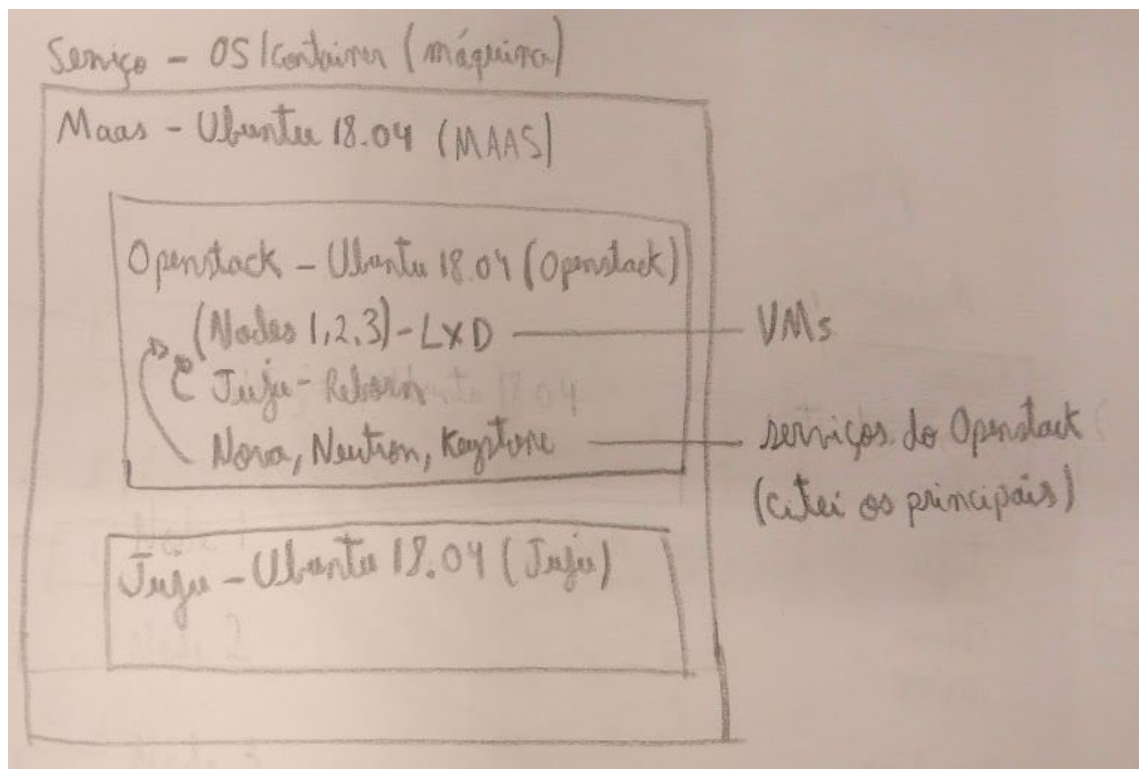 Serviço - OS/Container (máquina)
Maas - Ubuntu 18.04 (MAAS)
Openstack - Ubuntu 18.04 (Openstack)
(Nodes 1,2,3) - LXD
VMs
Juju -
Nova, Neutron, Keystone
serviços do Openstack
(citei os principais)
Juju - Ubuntu 18.04 (Juju)